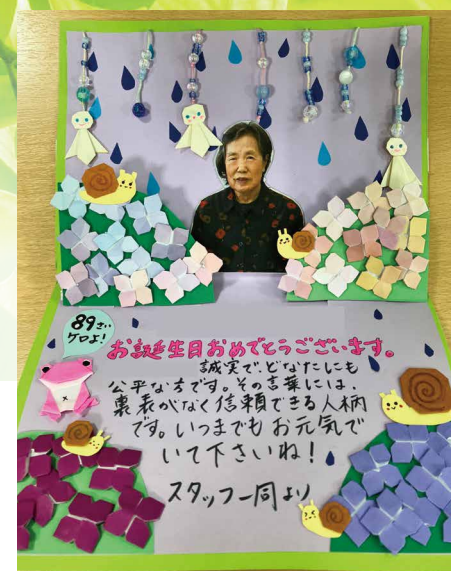 89さい
ケロよ!
お誕生日おめでとうございます。
誠実で、どなたにも
公平な方です。その言葉には、
裏表がなく信頼できる人柄
です。いつまでもお元気で
いて下さいね!
スタッフ一同より